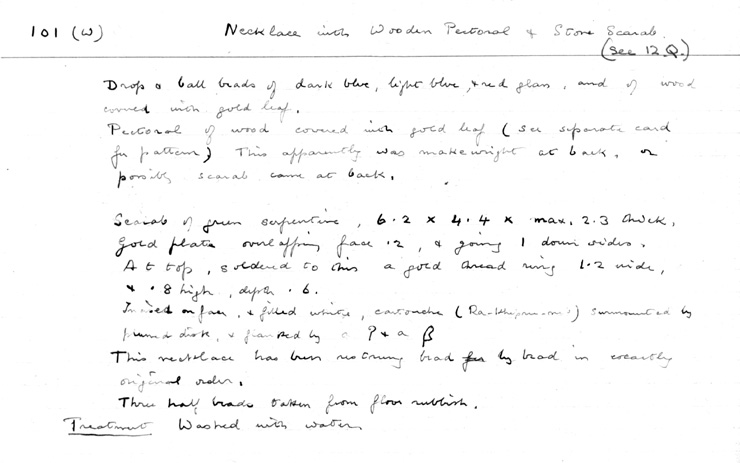 101 (W) Necklace with Wooden Pectoral & Stone Scarab.
(see 12.Q.)
Drop & ball beads of dark blue, light blue, & red glass, and of wood
covered with gold leaf.
Pectoral of wood covered with gold leaf (see separate card
for pattern) This apparently was makeweight at back, or
possibly scarab came at back.
Scarab of green serpentine, 6.2 x 4.4 x max. 2.3 thick.
Gold plate overlapping face .2, & going 1 down sides.
At top, soldered to this a gold thread ring 1.2 wide,
& .8 high, depth .6.
Incised on face, & filled white, cartouche surmounted by
plumed disk, & flanked by a & a
This necklace has been restrung bead by bead in exactly
original order.
Three half beads taken from floor rubbish.
Treatment Washed with water.